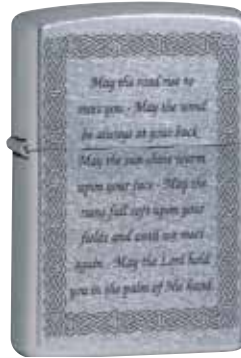 May the road rise to
meet you - May the wind
be always at your back
May the sun shine warm
upon your face - May the
rains fall soft upon your
fields and until we meet
again - May the Lord hold
you in the palm of His hand.